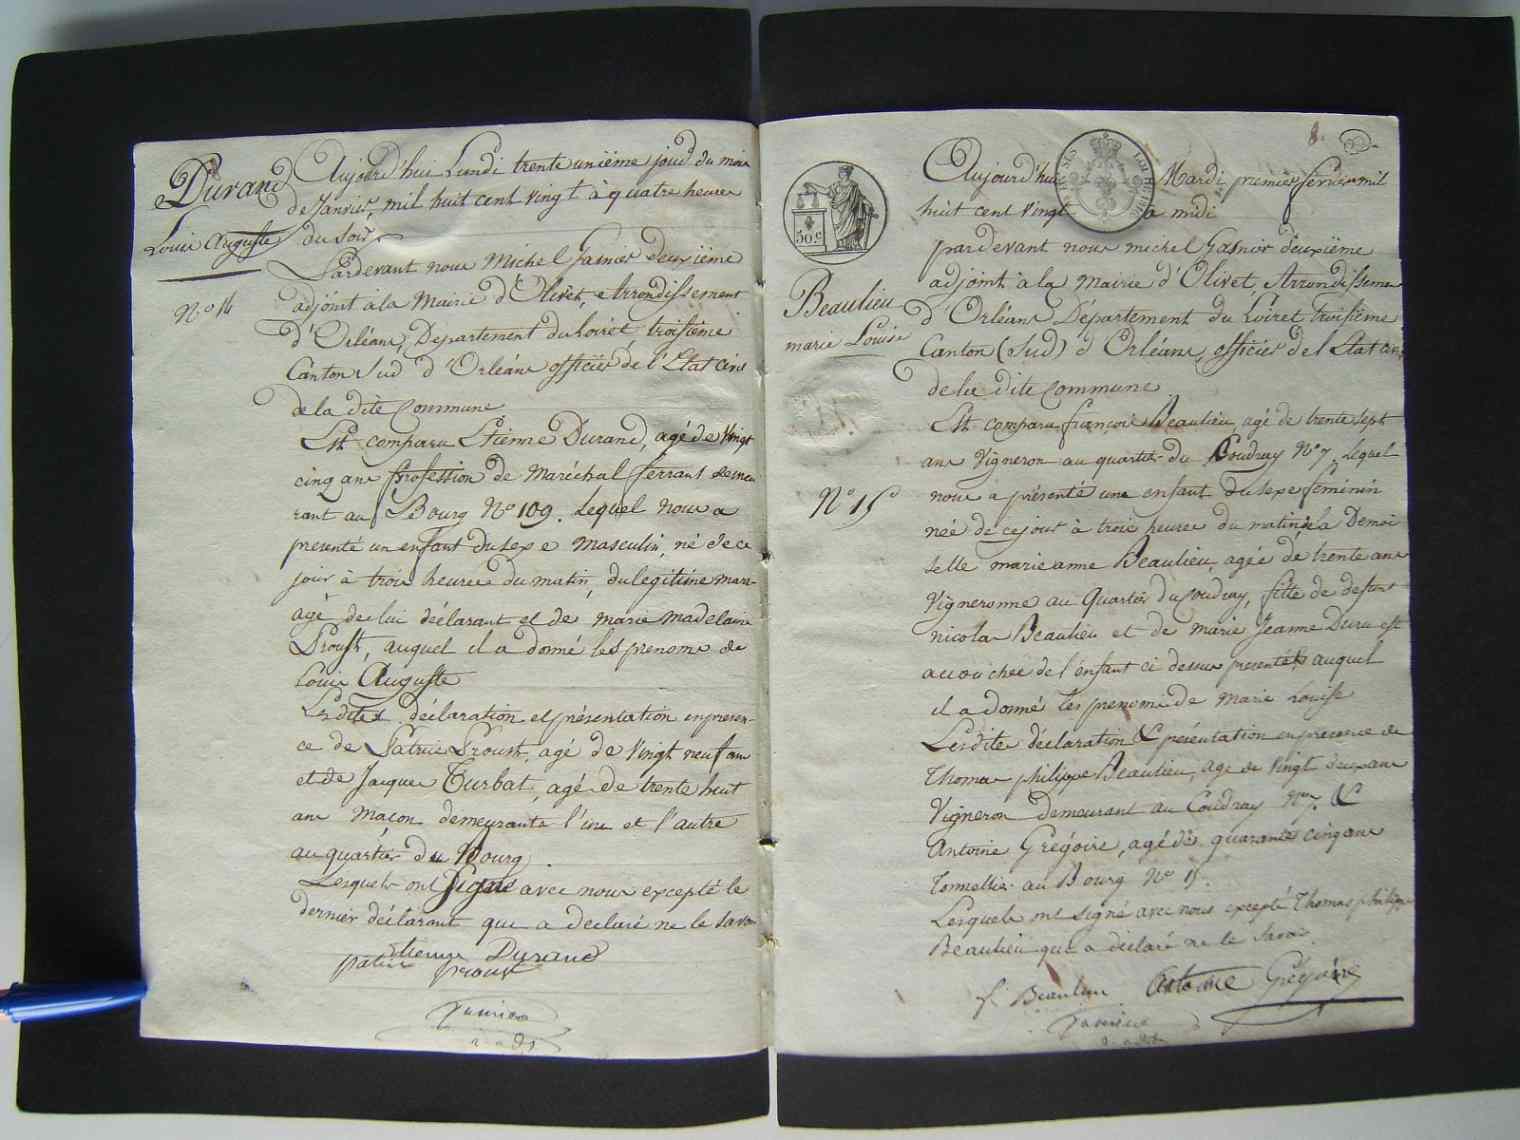 Durand
Louis Auguste
N° 14
Aujourd'hui Lundi trente unième jour du mois
de Janvier, mil huit cent vingt à quatre heures
du soir
Pardevant nous Michel Garnier deuxième
adjoint à la Mairie d'Olivet, Arrondissement
d'Orléans, Département du Loiret, troisième
Canton Sud d'Orléans officier de l'Etat civil
de la dite Commune
Est comparu Etienne Durand, agé de vingt
cinq ans profession de Maréchal ferrant demeu
rant au Bourg N° 109. Lequel nous a
presenté un enfant du sexe masculin, né de ce
jour à trois heures du matin, du legitime mari-
age de lui déclarant et de marie madelaine
Proust, auquel il a donné les prenoms de
Louis Auguste
Lesdites déclaration et présentation en presen-
ce de Patrice Proust, agé de vingt neuf ans
et de Jacques Turbat, agé de trente huit
ans Maçon demeurants l'un et l'autre
au quartier du Bourg.
Lesquels ont signé avec nous excepté le
dernier déclarant qui a declaré ne le savoir
etienne Durand
patrice proust
8.
50 c
Beaulieu
marie Louise
N° 15
Aujourd'hui Mardi premier février mil
huit cent vingt à midi
pardevant nous michel Garnier deuxième
adjoint à la Mairie d'Olivet, Arrondissement
d'Orléans Département du Loiret troisième
Canton (Sud) d'Orléans, officier de l'Etat civil
de la dite Commune
Est comparu françois Beaulieu, agé de trente sept
ans Vigneron au quartier du Coudray N° 7, Lequel
nous a présenté une enfant du sexe feminin
née de ce jour à trois heures du matin de la Demoi
selle marie anne Beaulieu, agée de trente ans
Vigneronne au Quartier du Coudray, fille de defunt
nicolas Beaulieu et de marie Jeanne Duru est
accouchée de l'enfant ci dessus presenté auquel
il a donné les prenoms de Marie Louise
Lesdites déclaration & présentation en presence de
Thomas philippe Beaulieu, agé de vingt deux ans
Vigneron demeurant au Coudray N° 7. &
Antoine Grégoire, agé de quarante cinq ans
Tonnellier au Bourg N° 15.
Lesquels ont signé avec nous excepté Thomas philippe
Beaulieu qui a déclaré ne le savoir
f. Beaulieu Antoine Grégoire